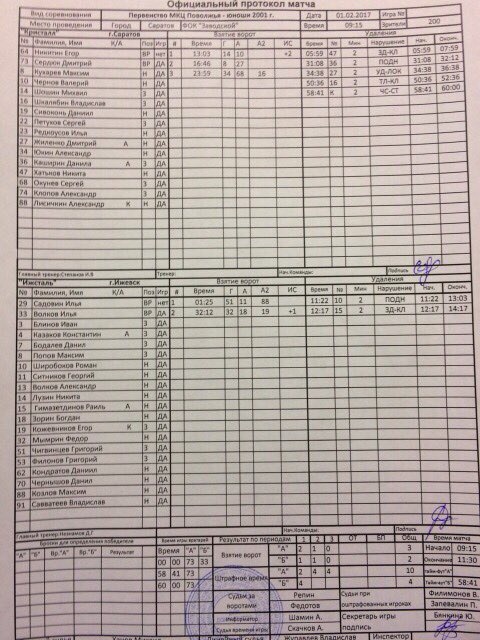 Официальный протокол матча
Вид соревнования Первенство МКЦ Поволжья - юноши 2001 г. Дата 01.02.2017 Игра №
Место проведения Город Саратов ФОК "Заводской" Время 09:15 Зрители 200
"Кристалл" г.Саратов Взятие ворот Удаления
№ Фамилия, Имя К/А Поз Игр # Время Г А А2 ИС Время № Мин Нарушение Нач. Оконч.
64 Никитин Егор ВР нет 1 13:03 14 10 +2 05:59 47 2 ЗД-КЛ 05:59 07:59
73 Сердюк Дмитрий ВР ДА 2 16:46 8 27 31:08 36 2 ПОДН 31:08 32:12
8 Кухарев Максим Н ДА 3 23:59 34 68 16 34:38 27 2 УД-ЛОК 34:38 36:38
10 Чернов Валерий Н ДА 50:36 16 2 ТЛ-КЛ 50:36 52:36
14 Шошин Михаил З ДА 58:41 К 2 ЧС-СТ 58:41 60:00
16 Шкалябин Владислав З ДА
19 Сивоконь Даниил Н ДА
22 Петухов Сергей З ДА
23 Редкоусов Илья Н ДА
27 Жиленко Дмитрий А Н ДА
34 Юкин Александр Н ДА
36 Каширин Данила А З ДА
47 Хатьнов Никита Н ДА
68 Окунев Сергей З ДА
74 Клопов Александр З ДА
88 Лисичкин Александр К Н ДА
Главный тренер:Степанов И.В Тренер: Нач.Команды: Подпись
"Ижсталь" г.Ижевск Взятие ворот Удаления
№ Фамилия, Имя К/А Поз Игр # Время Г А А2 ИС Время № Мин Нарушение Нач. Оконч.
29 Садовин Илья ВР нет 1 01:25 51 11 88 11:22 10 2 ПОДН 11:22 13:03
33 Волков Илья ВР ДА 2 32:12 32 18 19 +1 12:17 15 2 ЗД-КЛ 12:17 14:17
3 Блинов Иван З ДА
4 Казаков Константин А З ДА
7 Бодалев Данил З ДА
8 Попов Максим З ДА
10 Широбоков Роман Н ДА
11 Ситников Георгий Н ДА
13 Волков Александр Н ДА
14 Лузин Никита Н ДА
15 Гимазетдинов Раиль А З ДА
18 Зорин Богдан Н ДА
19 Кожевников Егор К З ДА
32 Мымрин Федор Н ДА
51 Чигвинцев Григорий З ДА
53 Филонов Григорий З ДА
62 Кондратов Даниил Н ДА
70 Чернышов Данил Н ДА
88 Козлов Максим Н ДА
91 Савватеев Владислав Н ДА
Главный тренер: Нач.Команды: Подпись
Броски для определения победителя Время игры вратарей Результат по периодам 1 2 3 ОТ БП Общ Время матча
"А" "Б" Вр."А" Вр."Б" Результат Время "А" "Б" Взятие ворот "А" 2 1 0 3 Начало 09:15
00 00 73 33 "Б" 1 1 0 2 Окончание 11:30
58 41 73 Штрафное время "А" 2 4 4 10 тайм-аут"А"
60 00 73 "Б" 4 4 тайм-аут"Б" 58:41
Судьи за воротами Репин Судьи при оштрафованных игроках Филимонов В.
Федотов Запевалин П.
Информатор Шамин А. Секретарь игры Бянкина Ю.
Судья времени игры Скачков А. подпись
Журавлев Владислав Инспектор